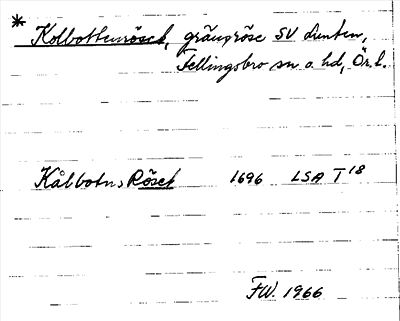 * Kolbottenrösck, gränsröse SV Lunten,
Fellingsbro sn o. hd, Ör. l.
Kålbotns Rösck 1696 LSA T 18
FW. 1966